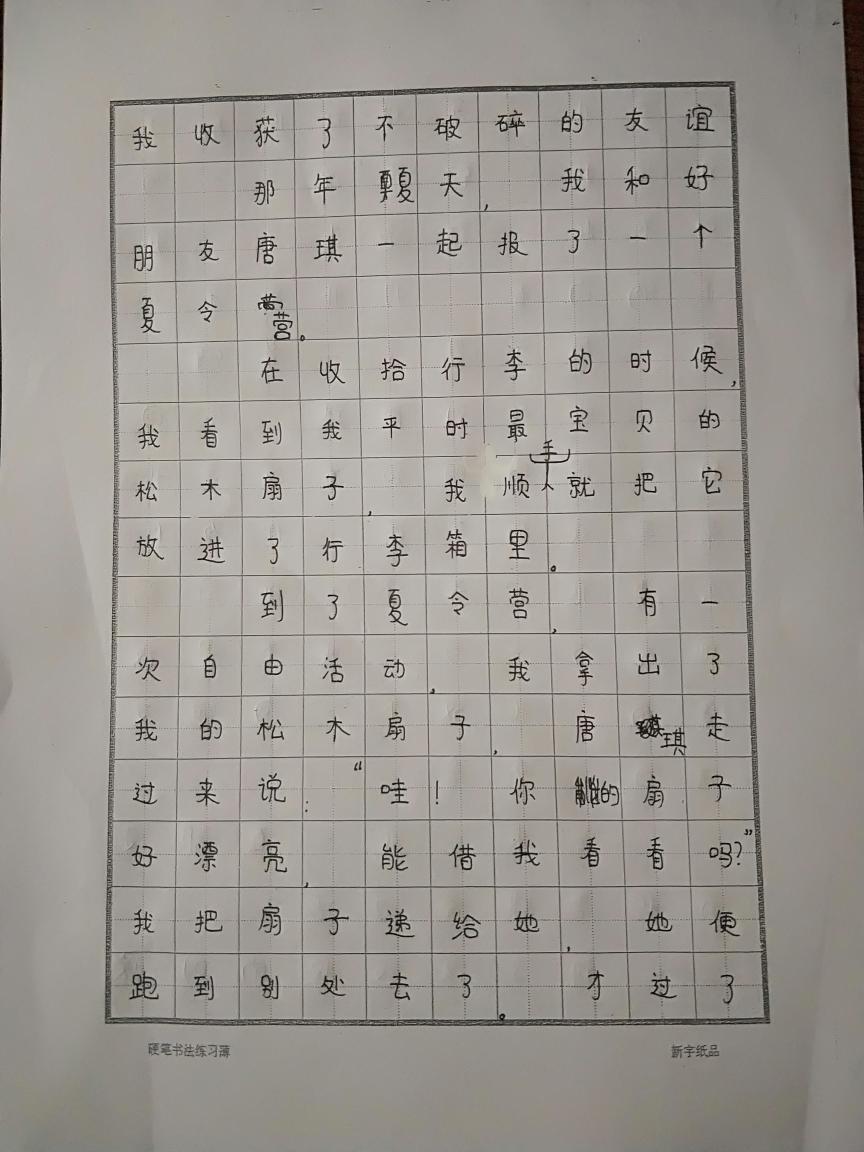 我收获了不破碎的友谊
那年夏天，我和好
朋友唐琪一起报了一个
夏令营。
在收拾行李的时候，
我看到我平时最宝贝的
松木扇子，我顺手就把它
放进了行李箱里。
到了夏令营，有一
次自由活动，我拿出了
我的松木扇子，唐琪走
过来说：“哇！你的扇子
好漂亮，能借我看看吗？”
我把扇子递给她，她便
跑到别处去了。才过了
硬笔书法练习薄 新宇纸品